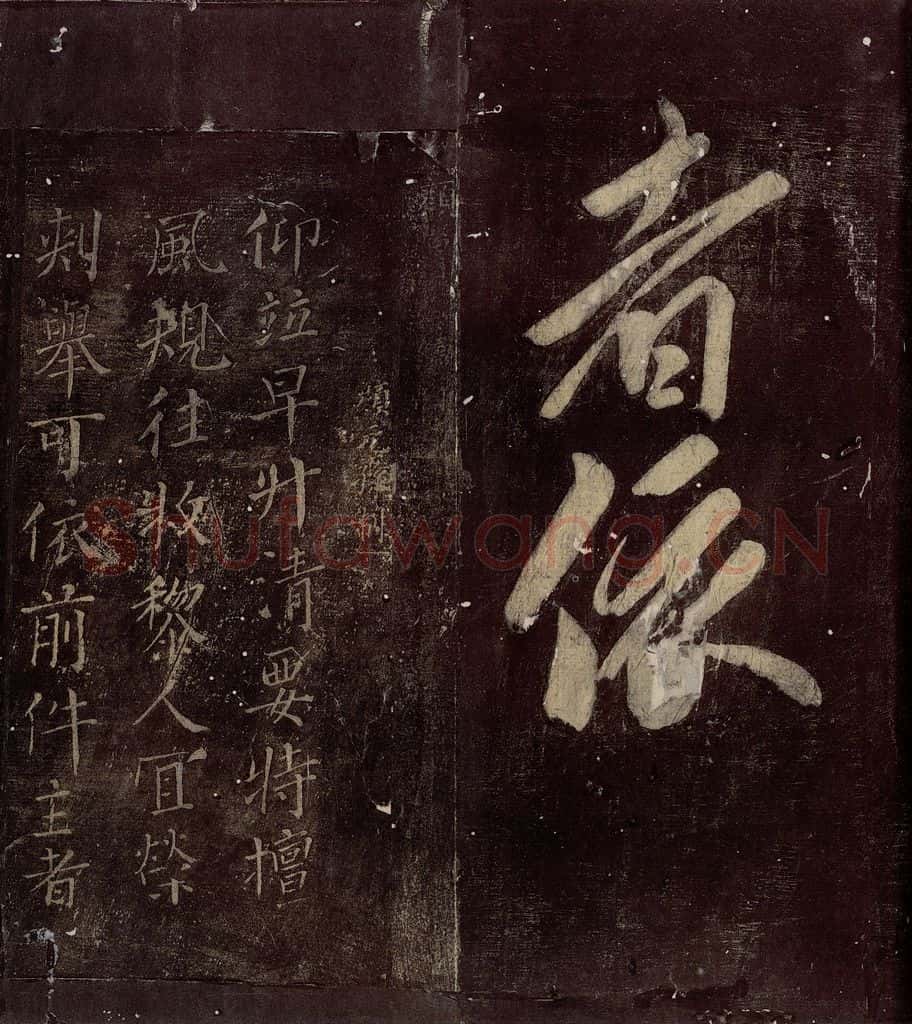 者依
仰竝早升清要特檀
風規往牧黎人宜榮
刾舉可依前件主者
Shufawang.CN